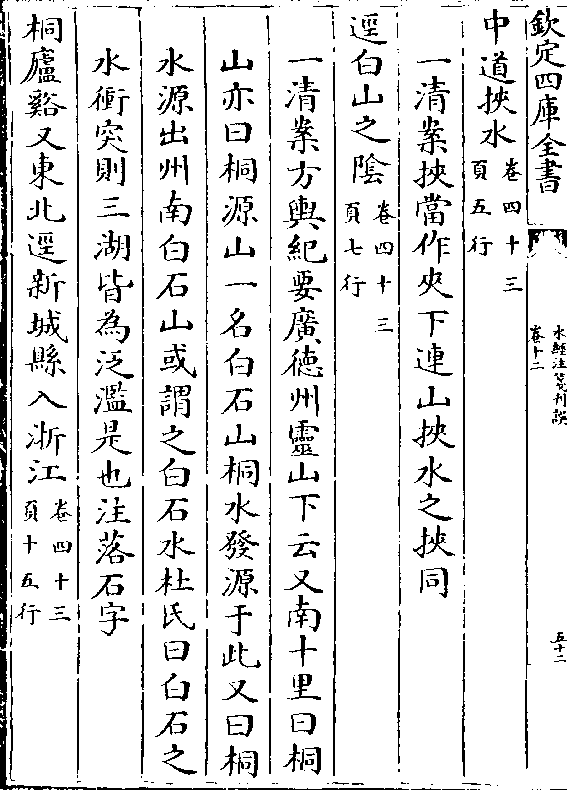 欽定四庫全書
水經注箋刊誤
卷十二
五十二
中道挾水
卷四十三
頁五行
一清案挾當作夾下連山挾水之挾同
逕白山之陰
卷四十三
頁七行
一清案方輿紀要廣徳州靈山下云又南十里曰桐
山亦曰桐源山一名白石山桐水發源于此又曰桐
水源出州南白石山或謂之白石水杜氏曰白石之
水衝突則三湖皆為泛濫是也注落石字
桐廬谿又東北逕新城縣入浙江
卷四十三
頁十五行